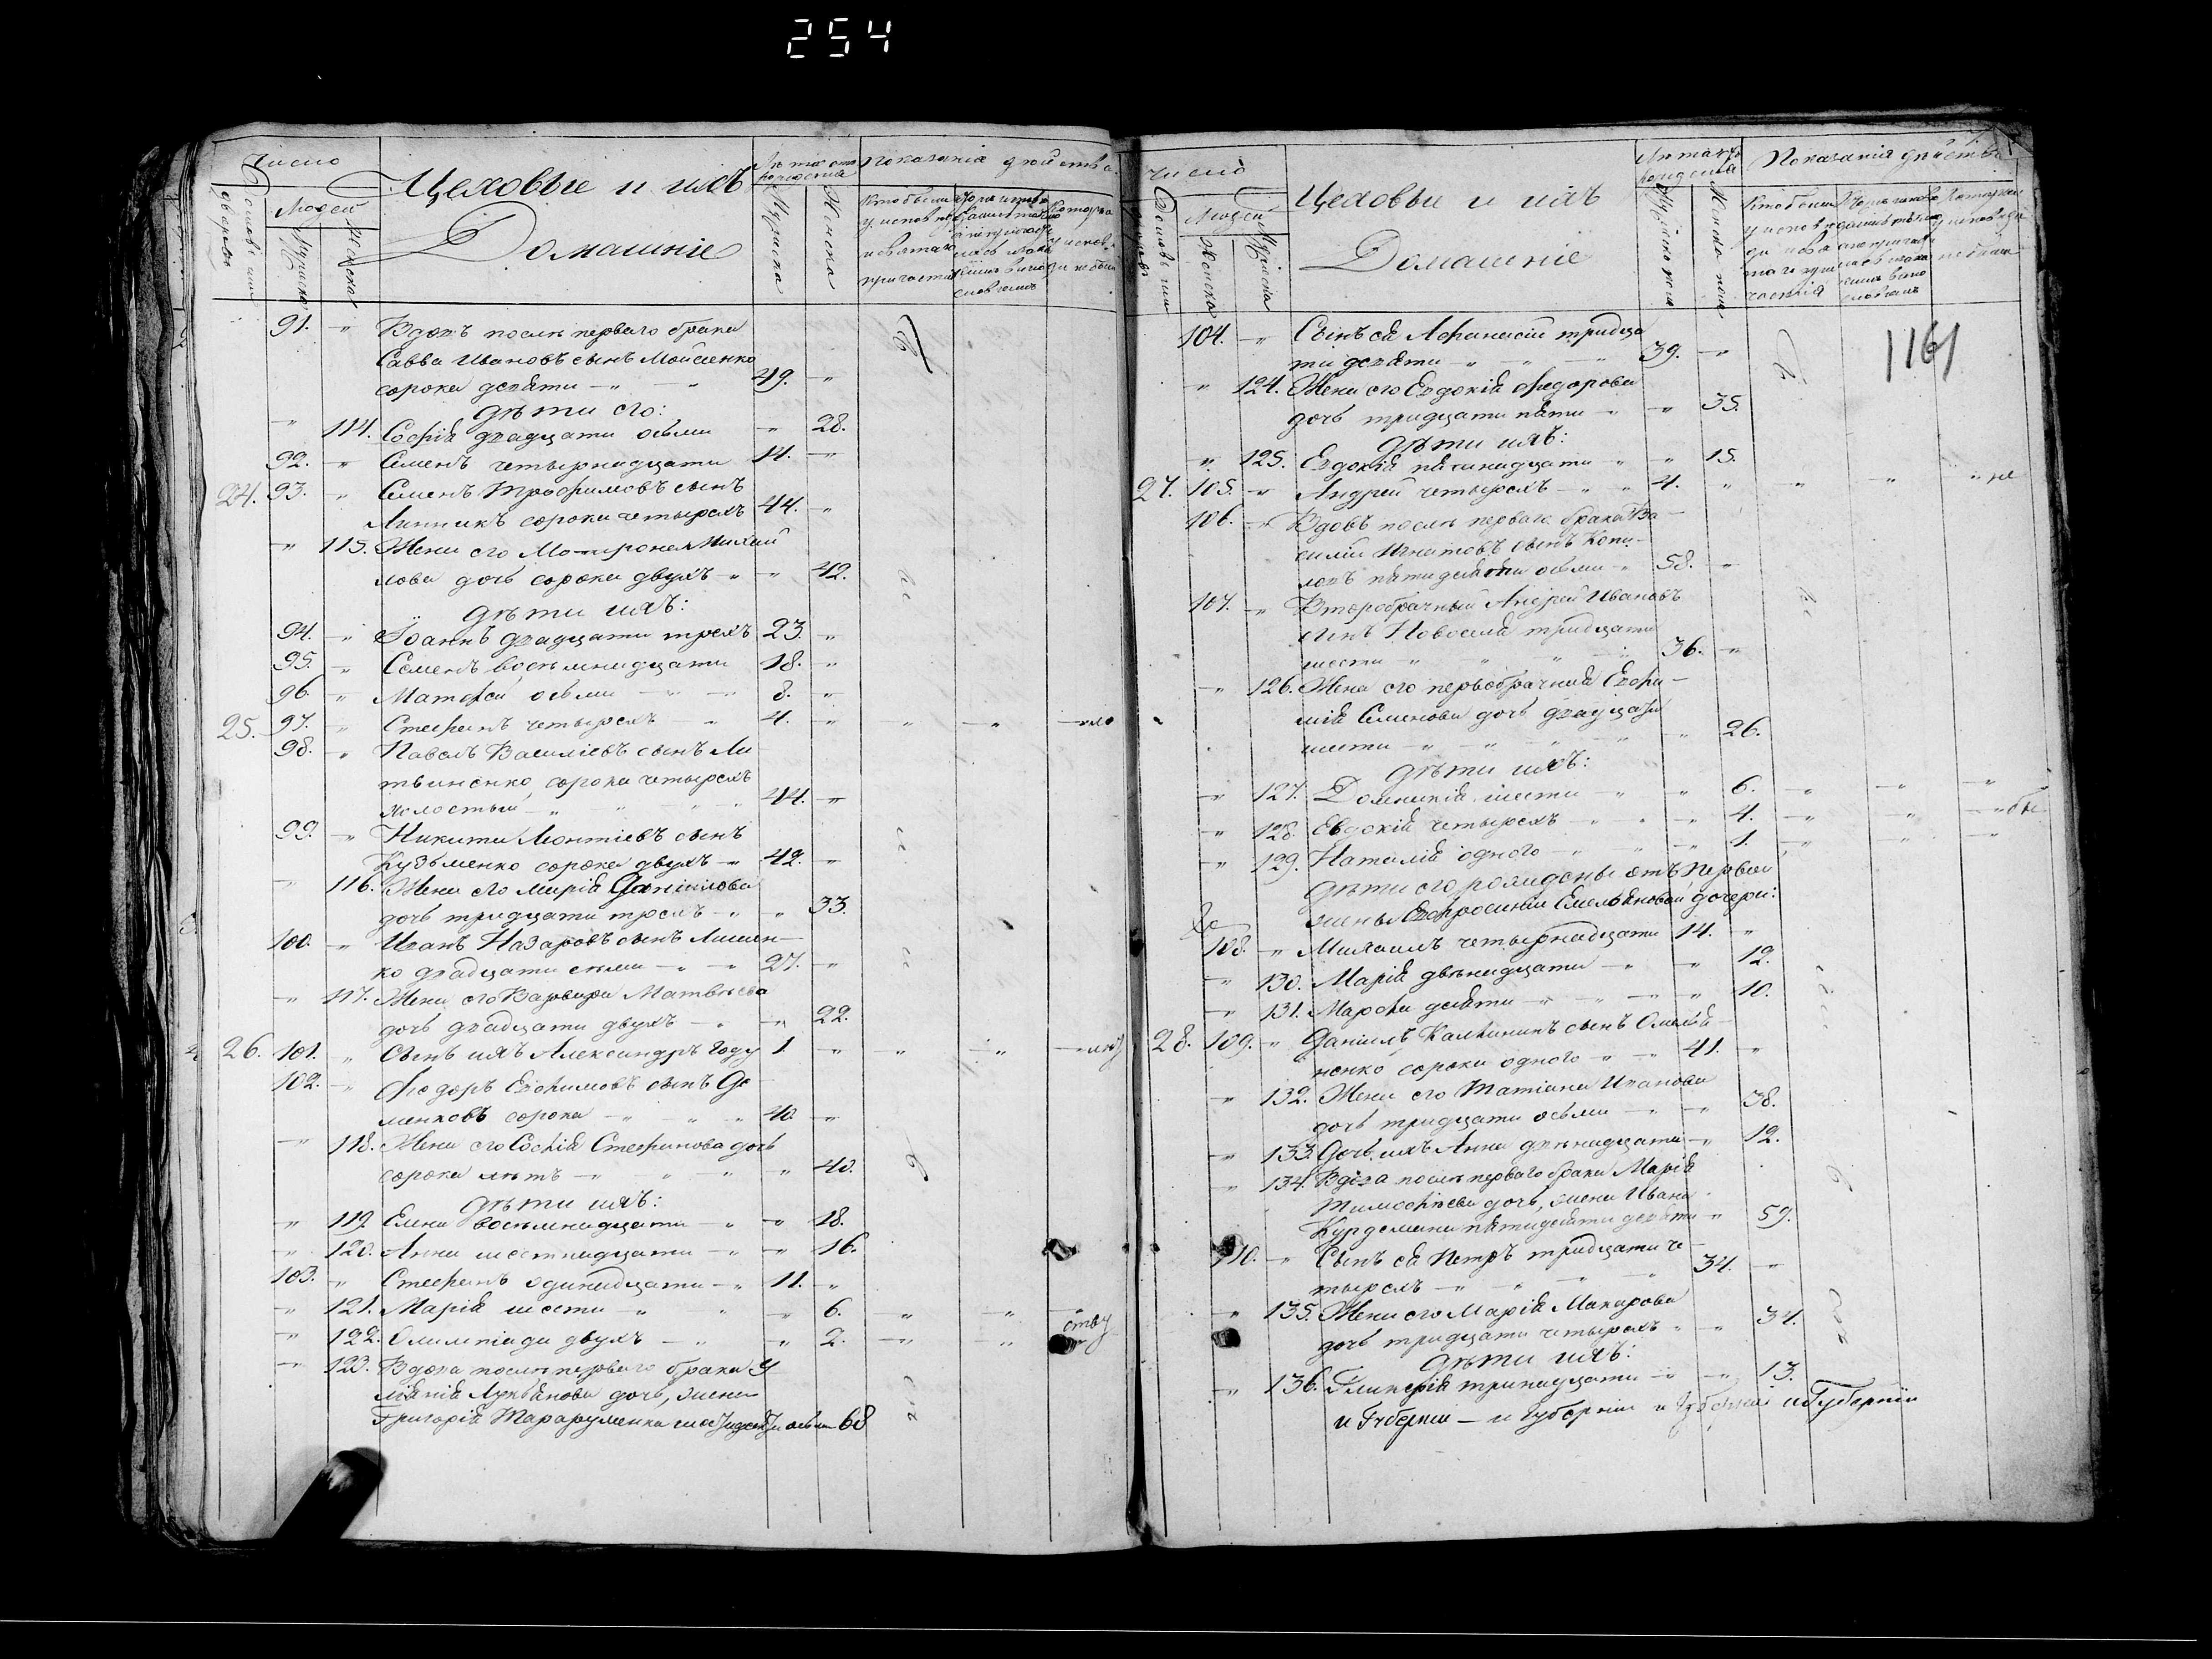 254
Число
Домовъ или дворовъ
Людей
Мужеска
Женска
Цеховые и ихъ
Домашніе
Лѣта отъ рожденія
Мужеска
Женска
Показанія дѣйства
91. " Вдовъ послѣ перваго брака
Савва Ивановъ сынъ Мойсѣенко
сорока девяти 49. "
дѣти его:
" 114. Софія двадцати осьми " 28.
92. " Семенъ четырнадцати 14. "
24. 93. " Семенъ Трофимовъ сынъ
Линникъ сорока четырехъ 44. "
" 115. Жена его Матрона Михай
лова дочь сорока двухъ " 42.
дѣти ихъ:
94. " Іоаннъ двадцати трехъ 23. "
95. " Семенъ восемнадцати 18. "
96. " Матфей осьми 8. "
25. 97. " Стефанъ четырехъ 4. "
98. " Павелъ Василіевъ сынъ Ли
твиненко, сорока четырехъ
холостый 44. "
99. " Никита Леонтіевъ сынъ
Кузьменко сорока двухъ 42. "
" 116. Жена его Марія Даніилова
дочь тридцати трехъ " 33.
100. " Иванъ Назаровъ сынъ Лисен-
ко двадцати семи 27. "
" 117. Жена его Варвара Матвѣева
дочь двадцати двухъ " 22.
26. 101. " Сынъ ихъ Александръ году 1. "
102. " Федоръ Евфимовъ сынъ Де
менковъ сорока 40. "
" 118. Жена его Софія Стефанова дочь
сорока лѣтъ " 40.
дѣти ихъ:
" 119 Елена восемнадцати " 18.
" 120. Анна шестнадцати " 16.
103. " Стефанъ одинадцати 11. "
" 121. Марія шести " 6.
" 122. Олимпіада двухъ " 2.
" 123. Вдова послѣ перваго брака У
ліянія Лукьянова дочь, жена
Григорія Тарарушенка шестидесяти осьми 68
Число
Домовъ или дворовъ
Людей
Женска
Мужеска
Цеховые и ихъ
Домашніе
Лѣта отъ рожденія
Мужеска пола
Женска пола
Показанія дѣйства
1161
104. " Сынъ ея Афанасій тридца
ти девяти 39. "
" 124. Жена его Евдокія Федорова
дочь тридцати пяти " 35.
дѣти ихъ:
" 125. Евдокія пятнадцати " 15.
27. 105. " Андрей четырехъ 4. "
106. " Вдовъ послѣ перваго брака Ва-
силій Игнатовъ сынъ Копи-
ловъ пятидесяти осьми 58. "
107. " Второбрачный Андрей Ивановъ
сынъ Новоселя тридцати
шести 36. "
" 126. Жена его первобрачная Евфи-
мія Семенова дочь двадцати
шести " 26.
дѣти ихъ:
" 127. Домникія шести " 6.
" 128. Евдокія четырехъ " 4.
" 129. Наталія одного " 1.
дѣти его рожденны отъ первой
жены Евфросиніи Емельяновой дочери:
108. " Михаилъ четырнадцати 14. "
" 130. Марія двѣнадцати " 12.
" 131. Марфа десяти " 10.
28. 109. " Даніилъ Калининъ сынъ Омелья-
ненко сорока одного 41. "
" 132. Жена его Татіана Иванова
дочь тридцати осьми " 38.
" 133. Дочь ихъ Анна двѣнадцати " 12.
" 134. Вдова послѣ перваго брака Марія
Тимофѣева дочь, жена Ивана
Курдемана пятидесяти девяти " 59.
110. " Сынъ ея Петръ тридцати че-
тырехъ 34. "
" 135. Жена его Марія Макарова
дочь тридцати четырехъ " 34.
дѣти ихъ:
" 136. Гликерія тринадцати " 13.
и Губерніи — и Губерніи и Губерніи и Губерніи